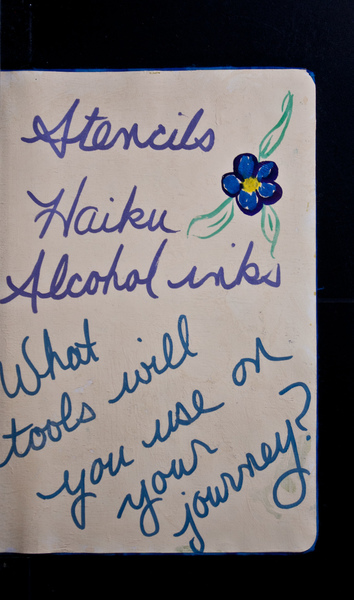 Stencils
Haiku
Alcohol inks
What will
tools you use on
your
journey?